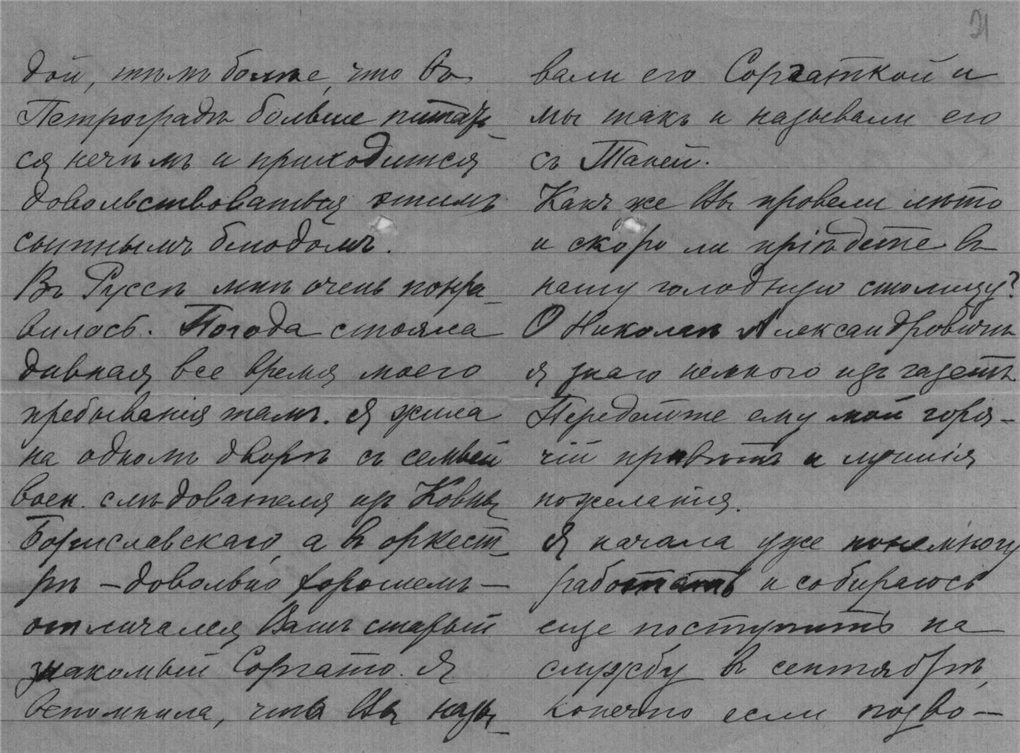 21
дой, тѣмъ болѣе, что въ
Петроградѣ больше питать-
ся нечѣмъ и приходится
довольствоваться этимъ
сытнымъ блюдомъ.
Въ Руссѣ мнѣ очень понра-
вилось. Погода стояла
дивная все время моего
пребыванія тамъ. Я жила
на одномъ дворѣ съ семьей
воен. слѣдователя изъ Ковны
Бориславскаго, а въ оркест-
рѣ – довольно хорошемъ –
отличался Вашъ старый
знакомый Соргато. Я
вспомнила, что Вы назы-
вали его Соргаткой и
мы такъ и называли его
съ Таней.
Какъ же Вы провели лѣто
и скоро ли пріѣдете въ
нашу голодную столицу?
О Николаѣ Александровичѣ
я знаю немного изъ газетъ.
Передайте ему мой горя-
чій привѣтъ и лучшія
пожеланія.
Я начала уже понемногу
работать и собираюсь
еще поступить на
службу въ сентябрѣ,
конечно если позво-